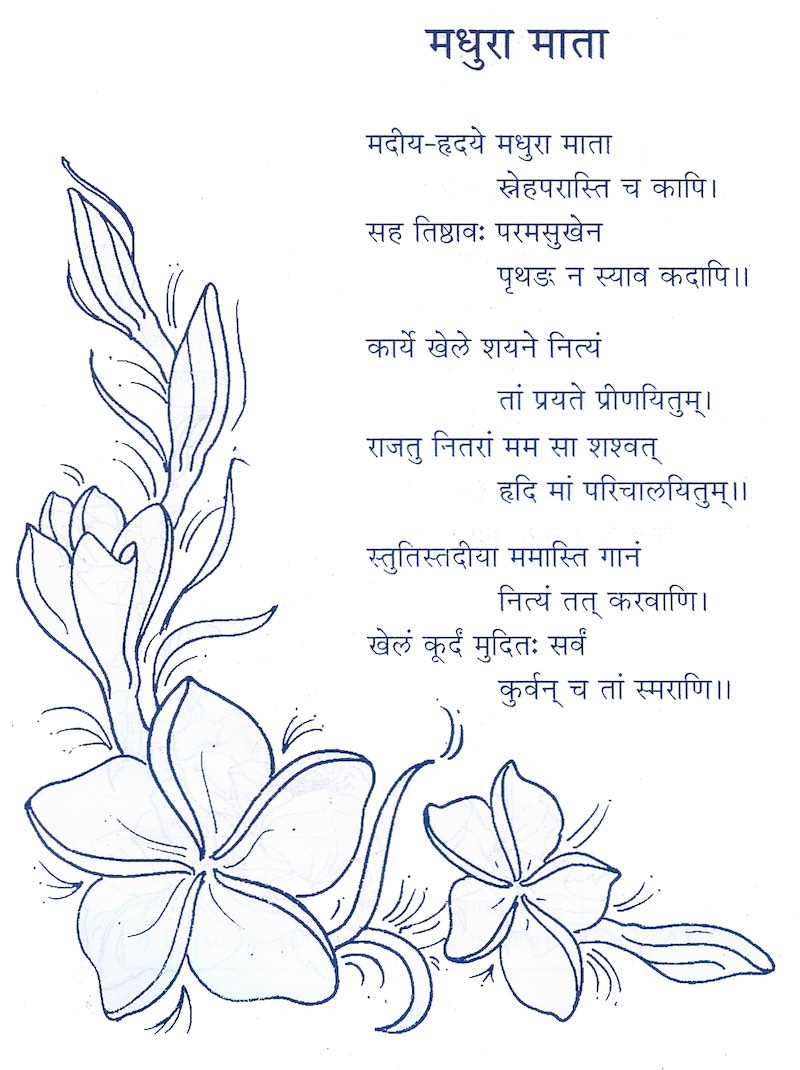 मधुरा माता
मदीय-हृदये मधुरा माता
स्नेहपरास्ति च कापि।
सह तिष्ठावः परमसुखेन
पृथङ् न स्याव कदापि।।
कार्ये खेले शयने नित्यं
तां प्रयते प्रीणयितुम्।
राजतु नितरां मम सा शश्वत्
हृदि मां परिचालयितुम्।।
स्तुतिस्तदीया ममास्ति गानं
नित्यं तत् करवाणि।
खेलं कूर्दं मुदितः सर्वं
कुर्वन् च तां स्मराणि।।